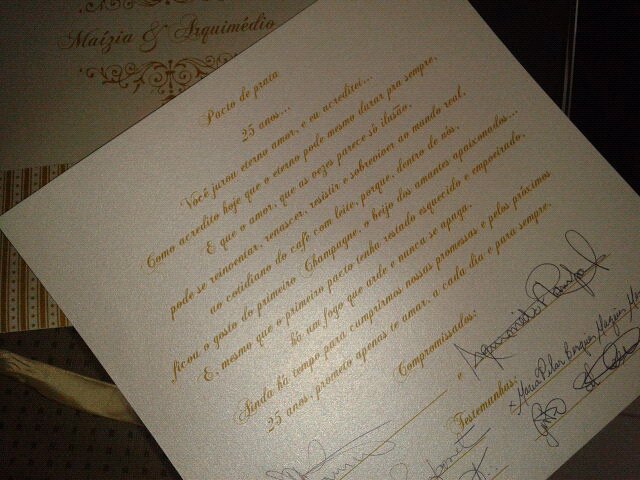 Maízia & Arquimédio
Pacto de praia
25 anos...
Você jurou eterno amor, e eu acreditei...
Como acredito hoje que o eterno pode mesmo durar pra sempre,
E que o amor, que as vezes parece só ilusão,
pode se reinventar, renascer, resistir e sobreviver ao mundo real,
ao cotidiano do café com leite, porque, dentro de nós,
ficou o gosto do primeiro Champagne, o beijo dos amantes apaixonados...
E, mesmo que o primeiro pacto tenha restado esquecido e empoeirado,
há um fogo que arde e nunca se apaga.
Ainda há tempo para cumprirmos nossas promessas e pelos próximos
25 anos, prometo apenas te amar, a cada dia e para sempre.
Compromissados:
e
Testemunhas:
Maria Pilar